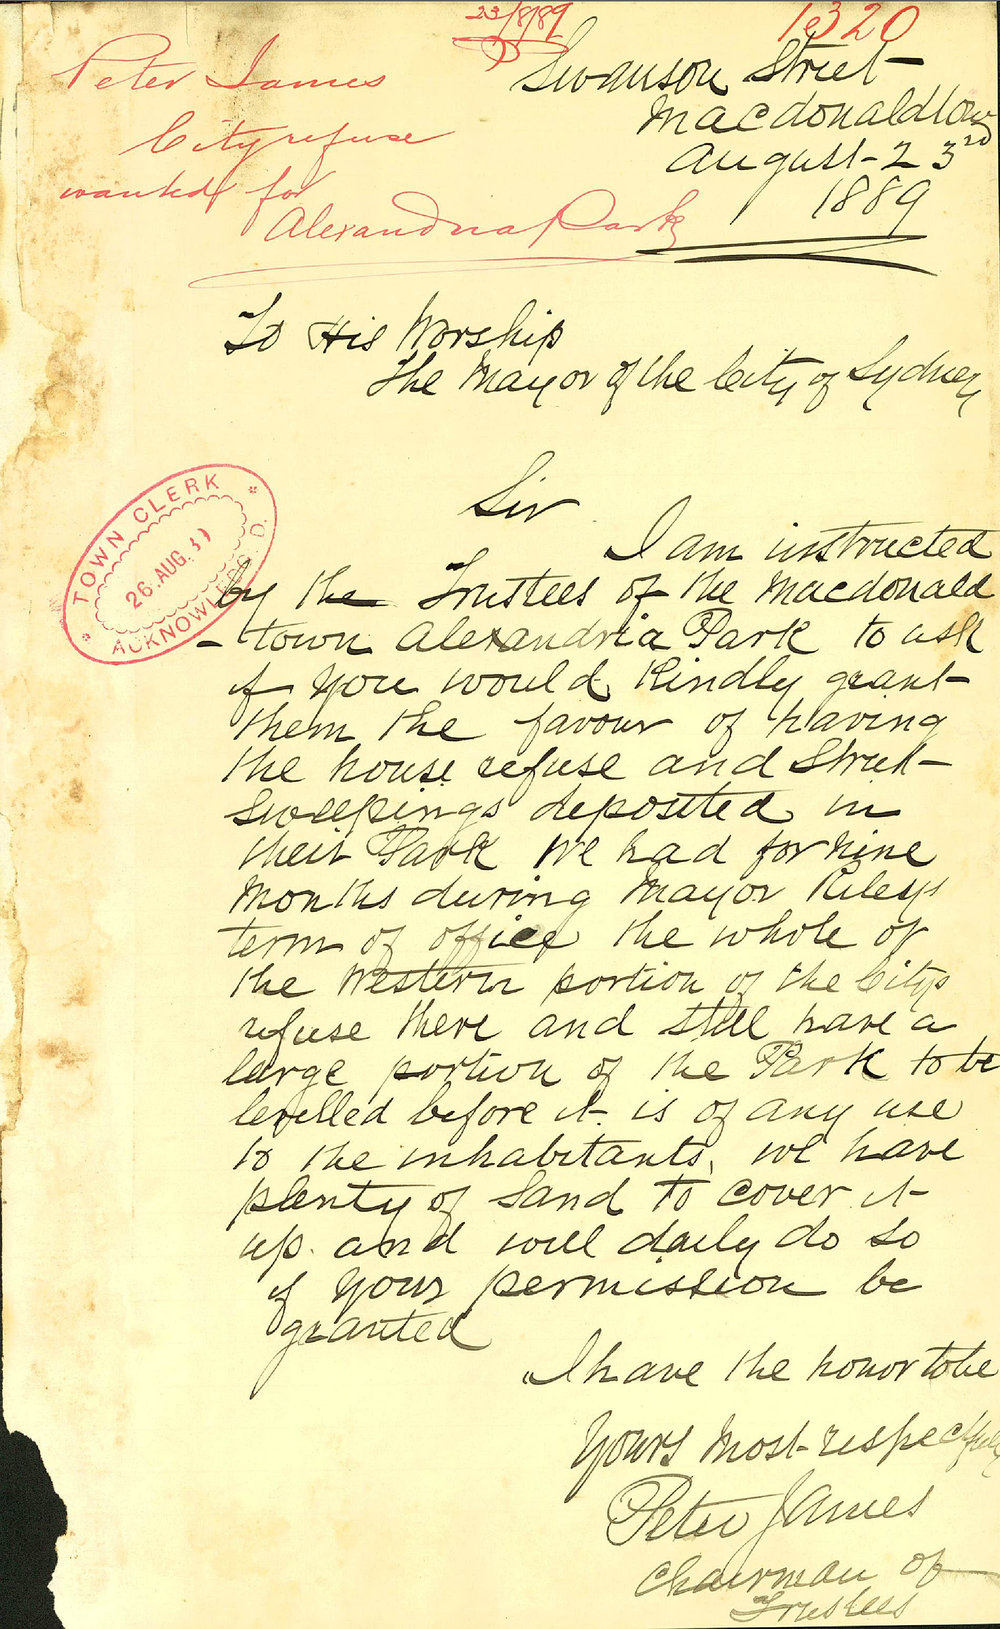 23/8/89
1320
Peter James
City refuse
wanted for
Alexandria Park
Swanson Street
Macdonaldtown
August 23rd
1889
To His Worship
The Mayor of the City of Sydney
TOWN CLERK
26.AUG.
ACKNOWLEDGED.
Sir
I am instructed
by the Trustees of the Macdonald
-town Alexandria Park to ask
if you would kindly grant
them the favour of having
the house refuse and Street
sweepings deposited in
their Park We had for nine
months during Mayor Rileys
term of office the whole of
the Western portion of the Citys
refuse there and still have a
large portion of the Park to be
levelled before it is of any use
to the inhabitants, we have
plenty of sand to cover it
up. and will daily do so
if your permission be
granted
I have the honor to be
Yours most respectfully
Peter James
Chairman of
Trustees